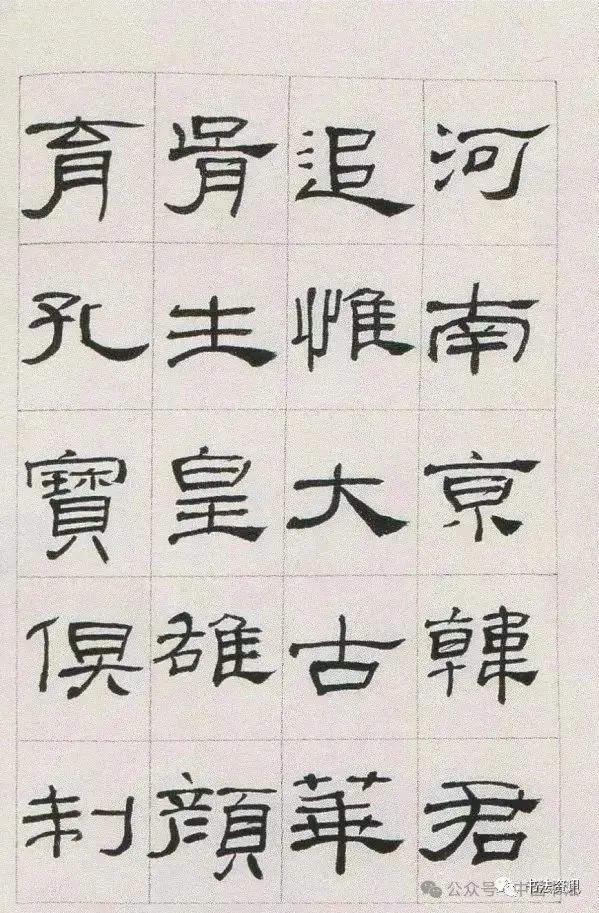 河南京韓君
追惟大古華
胥生皇雄顏
育孔寶俱制
公众号·中
书法资讯